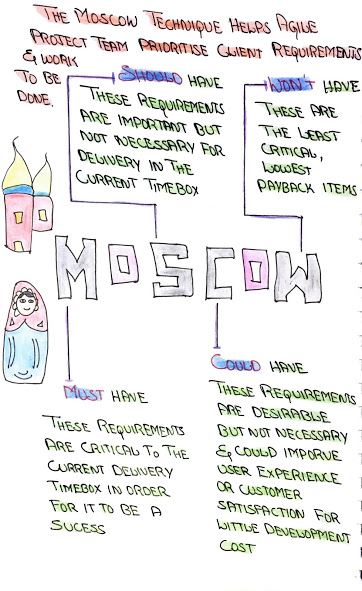 THE MOSCOW TECHNIQUE HELPS AGILE
PROJECT TEAM PRIORITISE CLIENT REQUIREMENTS
& WORK
TO BE
DONE.
SHOULD HAVE
THESE REQUIREMENTS
ARE IMPORTANT BUT
NOT NECESSARY FOR
DELIVERY IN THE
CURRENT TIMEBOX
WON'T HAVE
THESE ARE
THE LEAST
CRITICAL,
LOWEST
PAYBACK ITEMS
MOSCOW
MUST HAVE
THESE REQUIREMENTS
ARE CRITICAL TO THE
CURRENT DELIVERY
TIMEBOX IN ORDER
FOR IT TO BE A
SUCESS
COULD HAVE
THESE REQUIREMENTS
ARE DESIRABLE
BUT NOT NECESSARY
& COULD IMPORVE
USER EXPERIENCE
OR CUSTOMER
SATISFACTION FOR
LITTLE DEVELOPMENT
COST